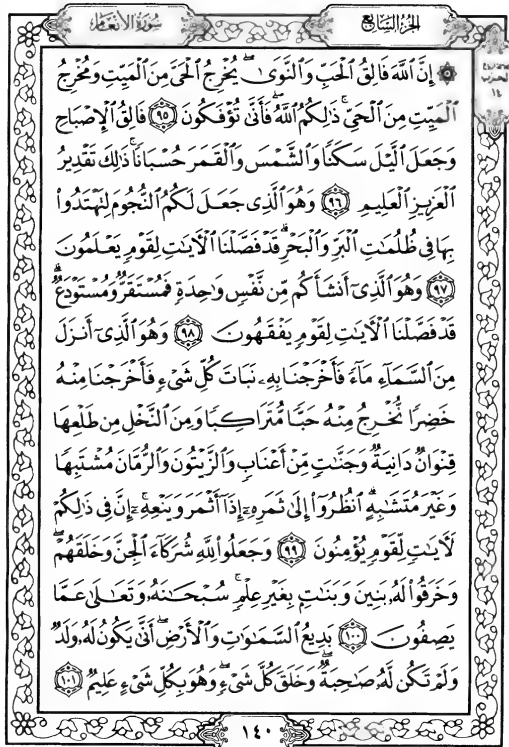 الجزء السابع
سورة الأنعام
الحزب
١٤
۞ إِنَّ ٱللَّهَ فَالِقُ ٱلْحَبِّ وَٱلنَّوَىٰ ۖ يُخْرِجُ ٱلْحَىَّ مِنَ ٱلْمَيِّتِ وَمُخْرِجُ
ٱلْمَيِّتِ مِنَ ٱلْحَىِّ ۚ ذَٰلِكُمُ ٱللَّهُ ۖ فَأَنَّىٰ تُؤْفَكُونَ ٩٥ فَالِقُ ٱلْإِصْبَاحِ
وَجَعَلَ ٱلَّيْلَ سَكَنًا وَٱلشَّمْسَ وَٱلْقَمَرَ حُسْبَانًا ۚ ذَٰلِكَ تَقْدِيرُ
ٱلْعَزِيزِ ٱلْعَلِيمِ ٩٦ وَهُوَ ٱلَّذِى جَعَلَ لَكُمُ ٱلنُّجُومَ لِتَهْتَدُوا۟
بِهَا فِى ظُلُمَٰتِ ٱلْبَرِّ وَٱلْبَحْرِ ۗ قَدْ فَصَّلْنَا ٱلْءَايَٰتِ لِقَوْمٍ يَعْلَمُونَ
٩٧ وَهُوَ ٱلَّذِىٓ أَنشَأَكُم مِّن نَّفْسٍ وَٰحِدَةٍ فَمُسْتَقَرٌّ وَمُسْتَوْدَعٌ ۗ
قَدْ فَصَّلْنَا ٱلْءَايَٰتِ لِقَوْمٍ يَفْقَهُونَ ٩٨ وَهُوَ ٱلَّذِىٓ أَنزَلَ
مِنَ ٱلسَّمَآءِ مَآءً فَأَخْرَجْنَا بِهِۦ نَبَاتَ كُلِّ شَىْءٍ فَأَخْرَجْنَا مِنْهُ
خَضِرًا نُّخْرِجُ مِنْهُ حَبًّا مُّتَرَاكِبًا وَمِنَ ٱلنَّخْلِ مِن طَلْعِهَا
قِنْوَانٌ دَانِيَةٌ وَجَنَّٰتٍ مِّنْ أَعْنَابٍ وَٱلزَّيْتُونَ وَٱلرُّمَّانَ مُشْتَبِهًا
وَغَيْرَ مُتَشَٰبِهٍ ۗ ٱنظُرُوٓا۟ إِلَىٰ ثَمَرِهِۦٓ إِذَآ أَثْمَرَ وَيَنْعِهِۦٓ ۚ إِنَّ فِى ذَٰلِكُمْ
لَءَايَٰتٍ لِّقَوْمٍ يُؤْمِنُونَ ٩٩ وَجَعَلُوا۟ لِلَّهِ شُرَكَآءَ ٱلْجِنَّ وَخَلَقَهُمْ ۖ
وَخَرَقُوا۟ لَهُۥ بَنِينَ وَبَنَٰتٍۭ بِغَيْرِ عِلْمٍ ۚ سُبْحَٰنَهُۥ وَتَعَٰلَىٰ عَمَّا
يَصِفُونَ ١٠٠ بَدِيعُ ٱلسَّمَٰوَٰتِ وَٱلْأَرْضِ ۖ أَنَّىٰ يَكُونُ لَهُۥ وَلَدٌ
وَلَمْ تَكُن لَّهُۥ صَٰحِبَةٌ ۖ وَخَلَقَ كُلَّ شَىْءٍ ۖ وَهُوَ بِكُلِّ شَىْءٍ عَلِيمٌ ١٠١
١٤٠